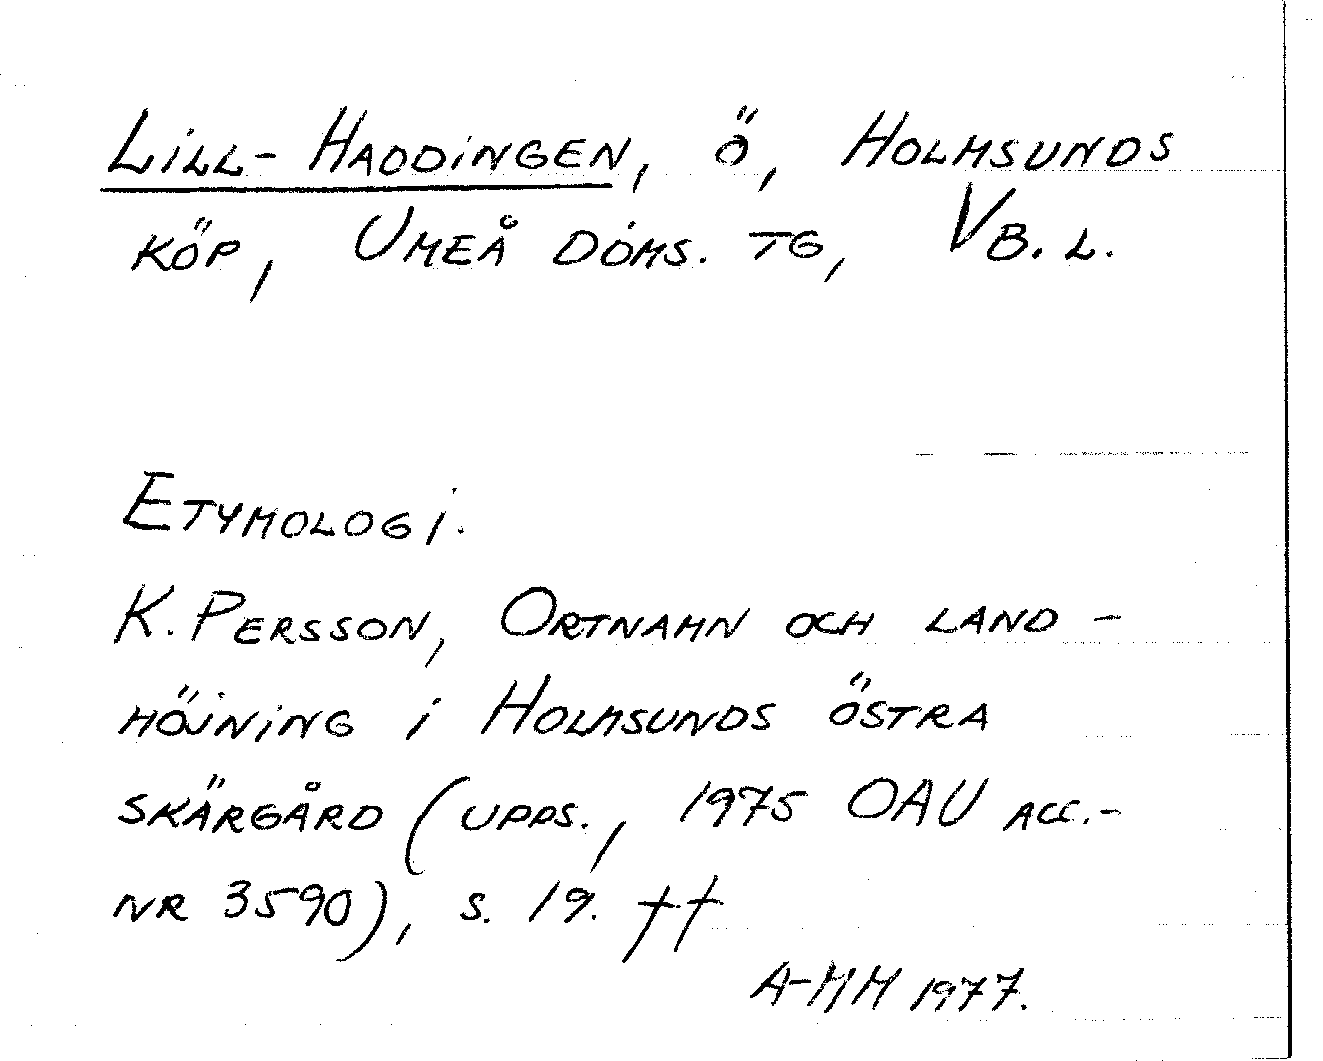 Lill-Haddingen, ö, Holmsunds
köp, Umeå doms. tg, Vb. l.
Etymologi.
K. Persson, Ortnamn och land-
höjning i Holmsunds östra
skärgård (upps., 1975 OAU acc.-
nr 3590), s. 19. ††
A-MM 1977.